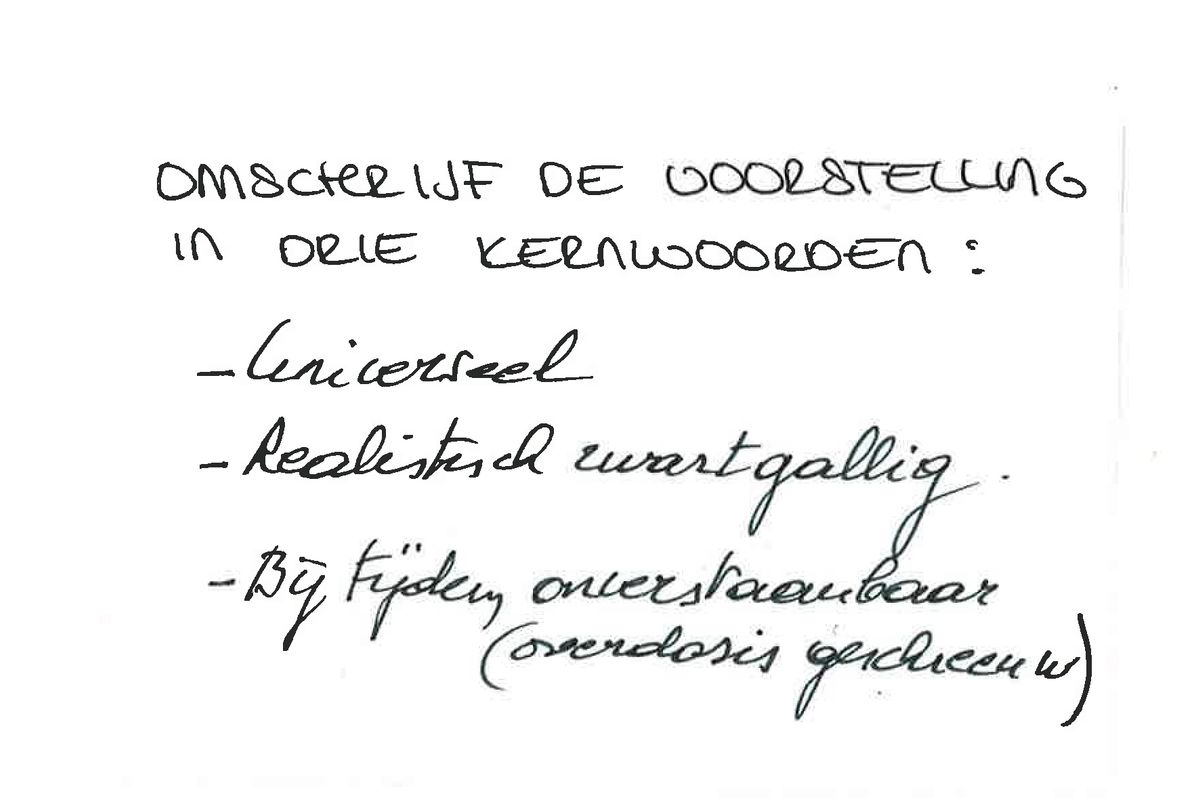 OMSCHRIJF DE VOORSTELLING
IN DRIE KERNWOORDEN :
- Universeel
- Realistisch zwartgallig.
- Bij tijden, onverstaanbaar
(overdosis geschreeuw)